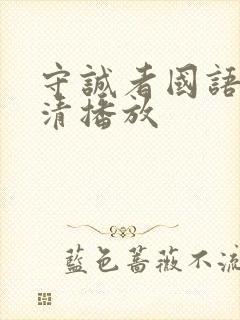 守誠者國語
清播放
藍色薔薇不流